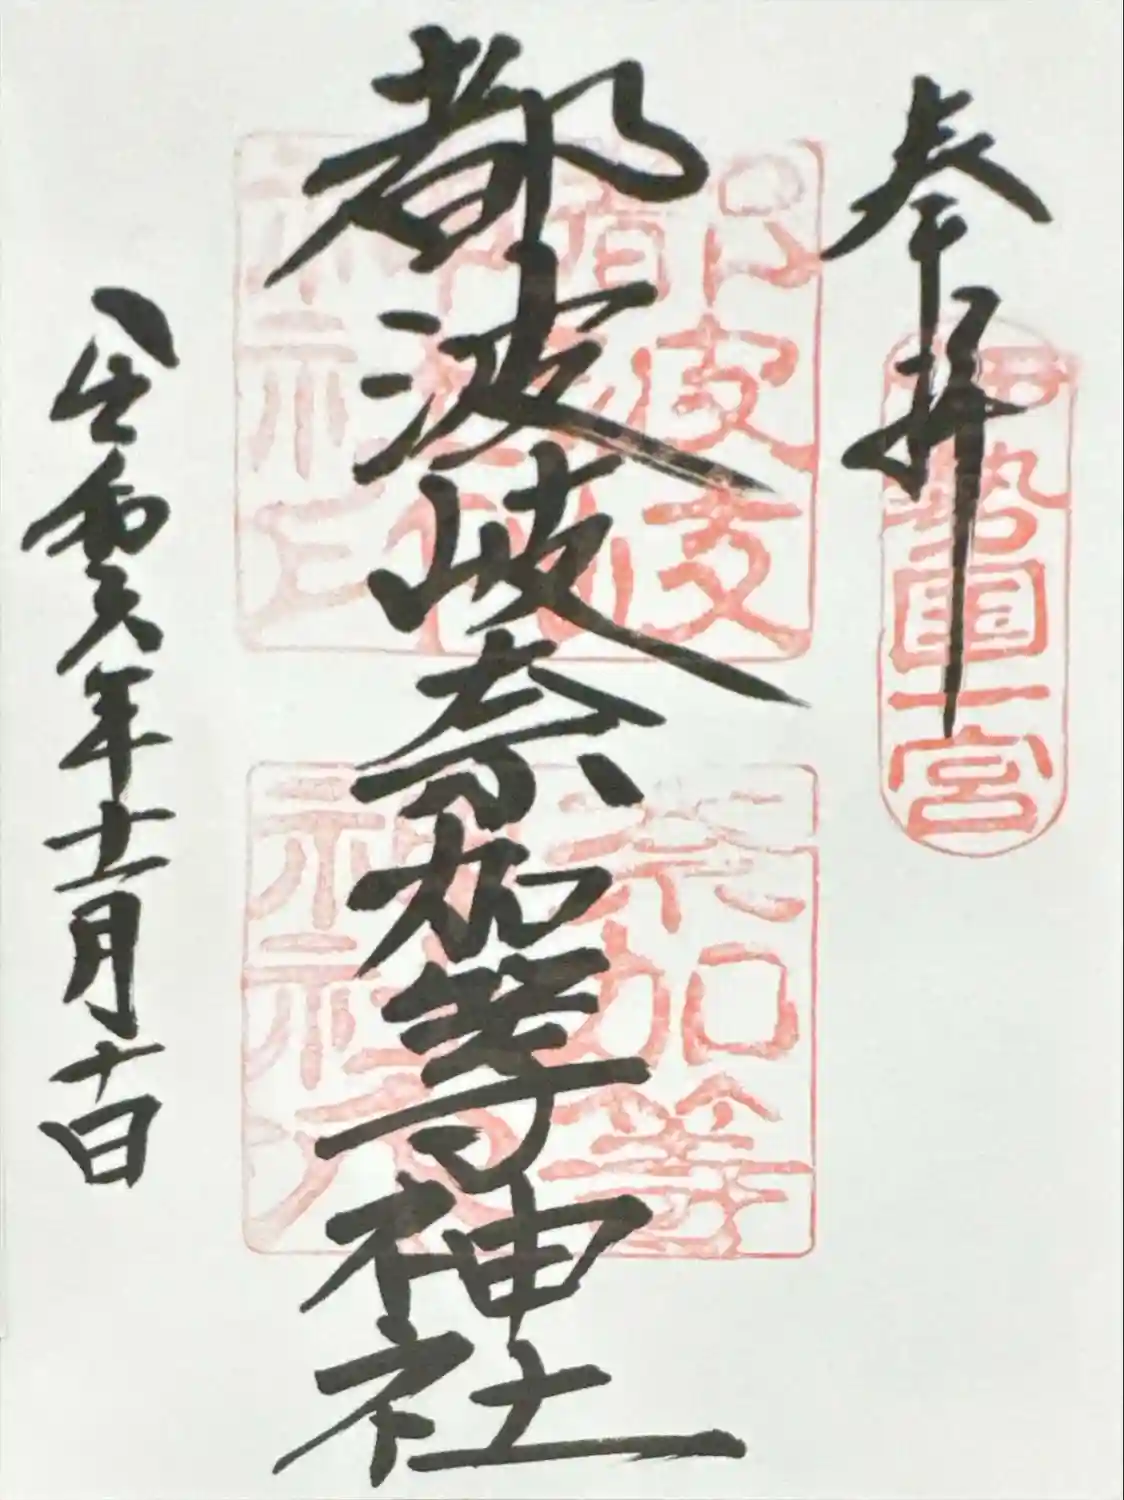 奉拝
伊勢國一宮
都波岐奈加等神社
都波岐神社印
奈加等神社
令和六年十一月十日